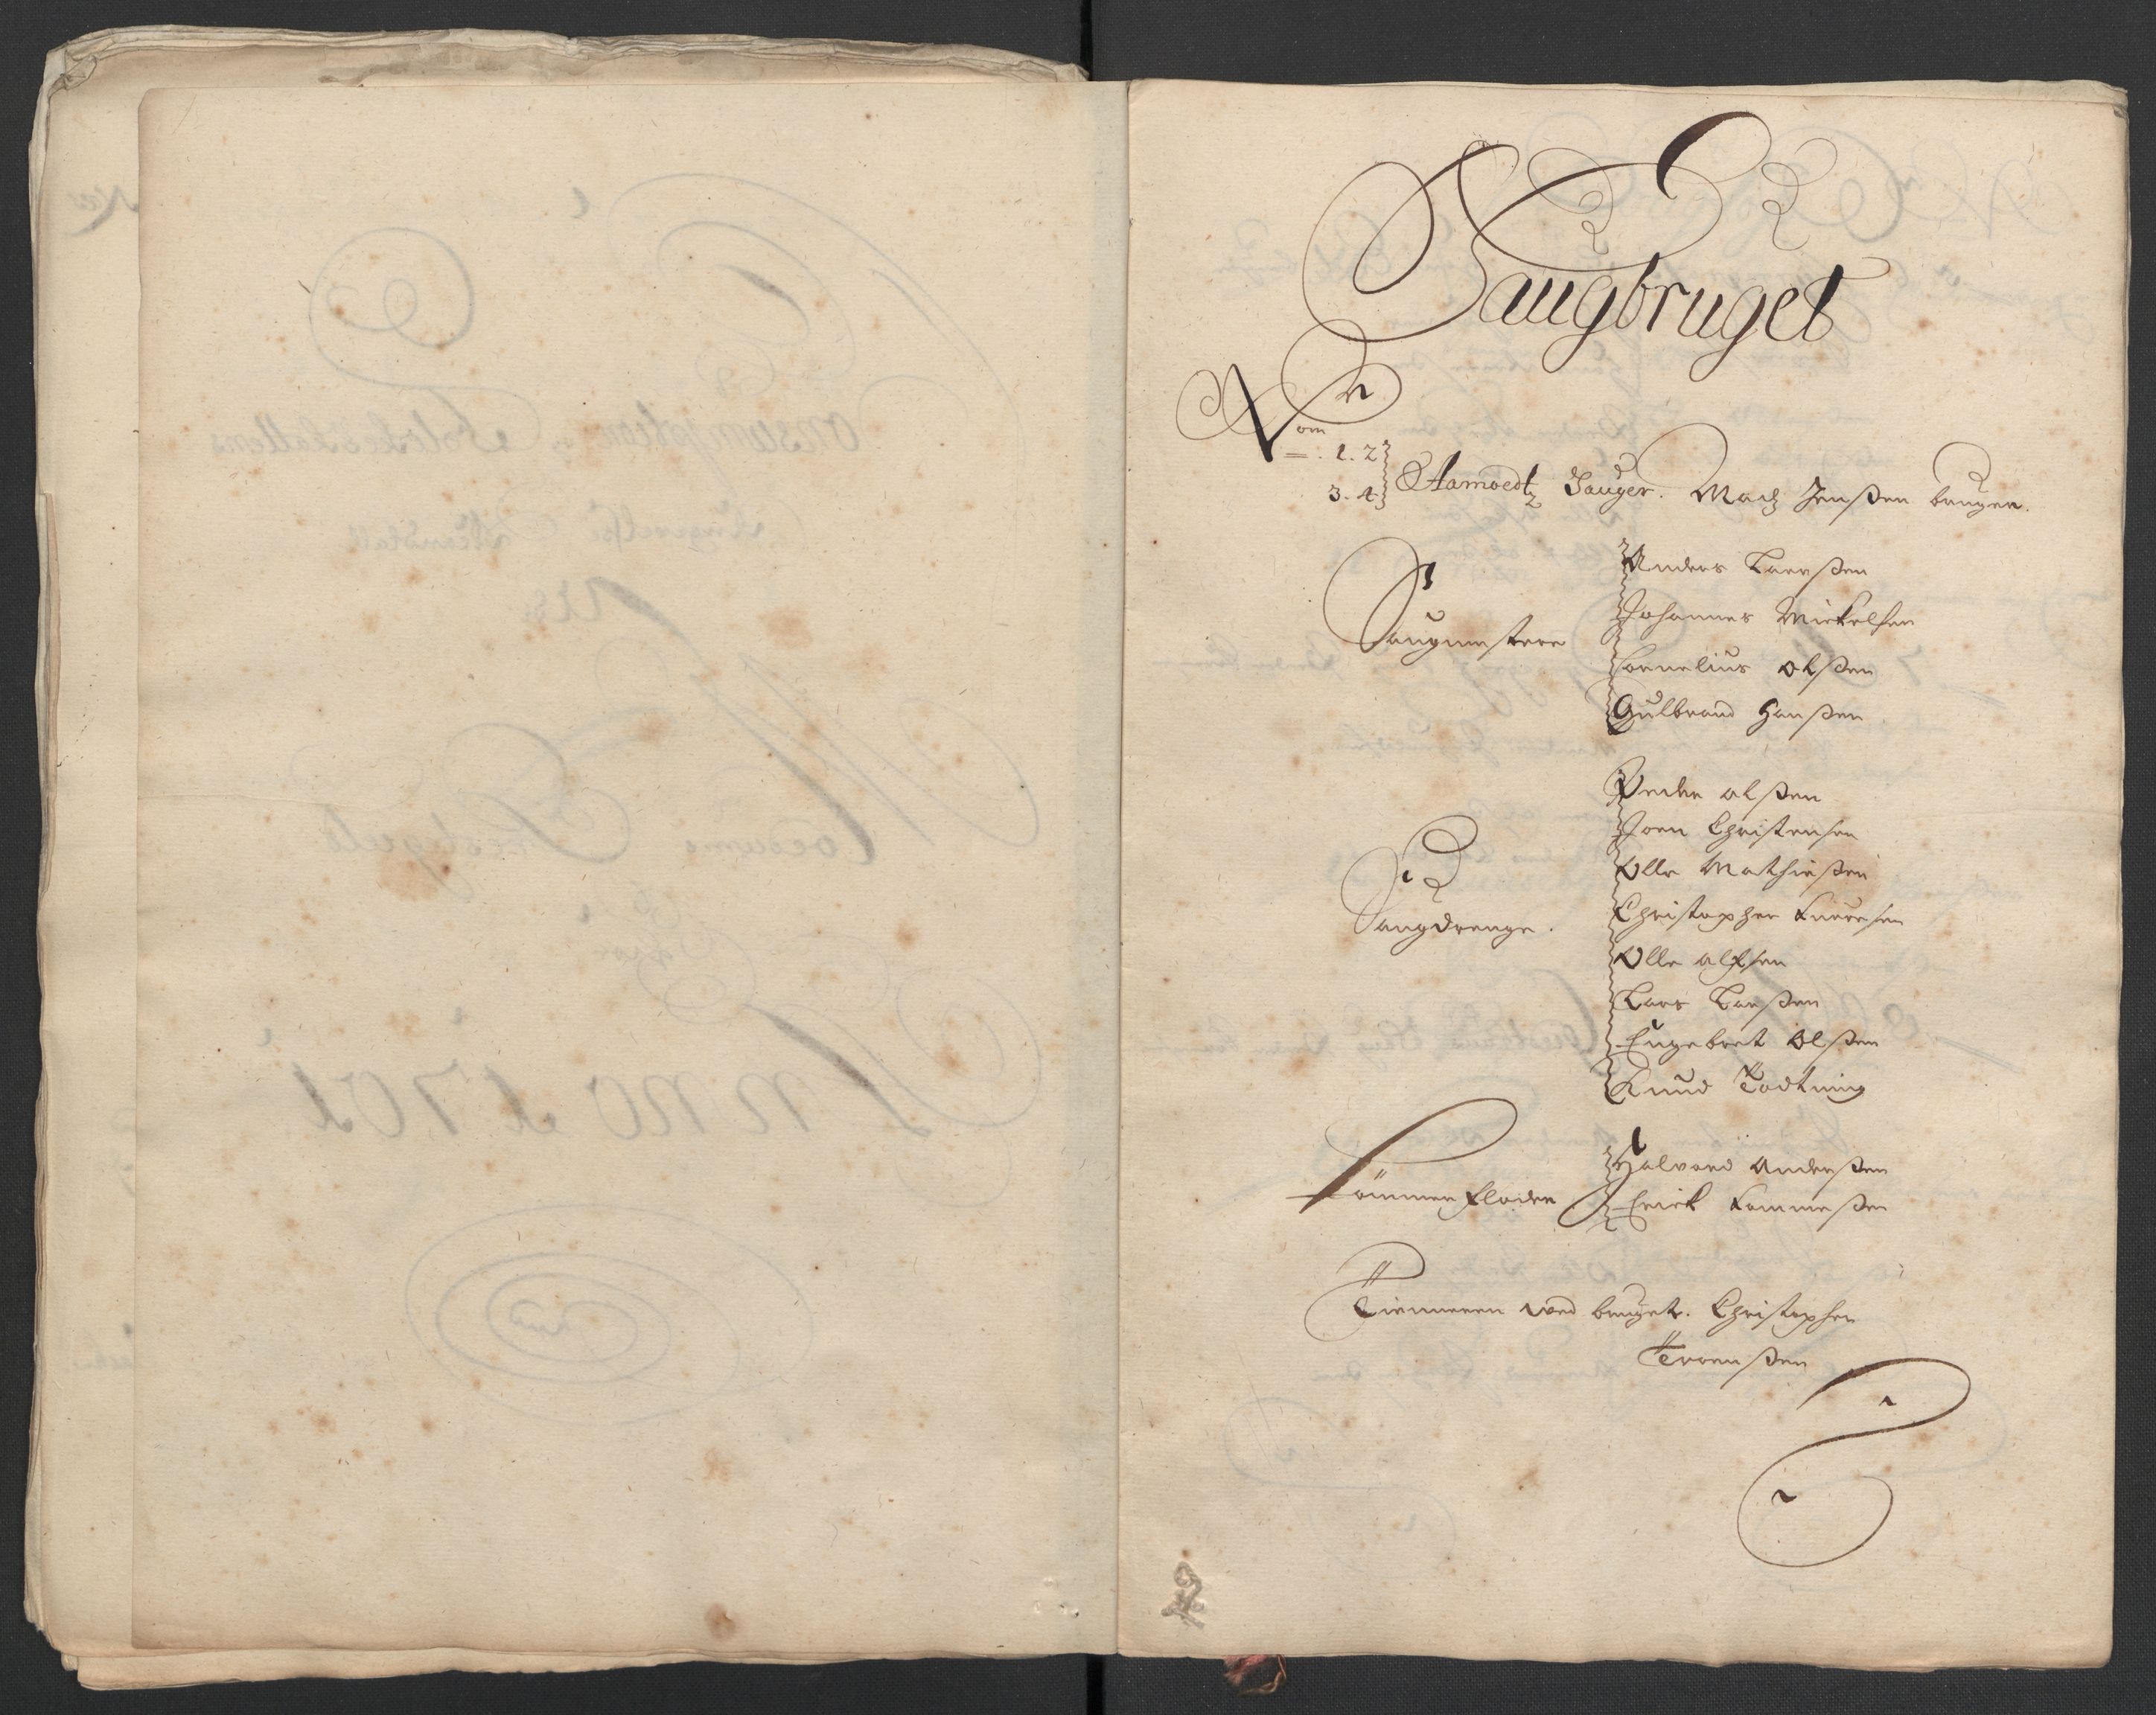 Saugbruget
No
1. 2
3. 4 Aamoedtz Sauger. Madz Jenßen bruger.
Saugmestere
Anders Larsßen
Johannes Mickelsen
Cornelius Olßen
Gulbrand Hanßen
Saugdrenge.
Peder Olßen
Joen Christensen
Olle Mathisßen
Christopher Lueresen
Olle Alfsen
Lars Larßen
Engebret Olßen
Knud Todtning
Tømmer Floder
Halvord Anderßen
Erick
Tienneren ved bruget. Christopher